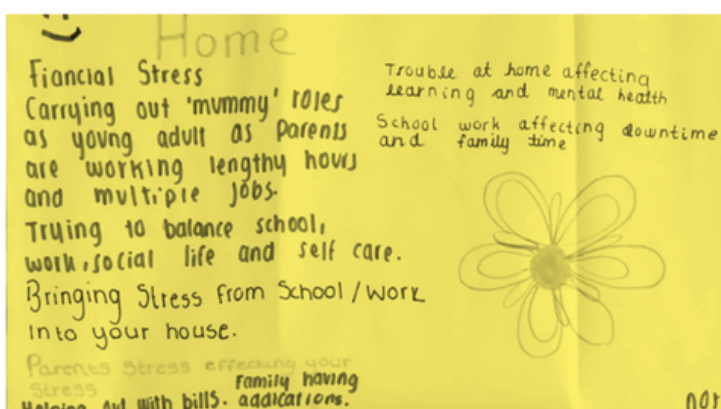 Home
Fiancial Stress
Carrying out 'mummy' roles
as young adult as Parents
are working lengthy hours
and multiple jobs.
Trying to balance school,
work, social life and self care.
Bringing Stress from School / Work
into your house.
Parents stress effecting your
stress
Helping out with bills.
Family having
addications.
Trouble at home affecting
learning and mental health
School work affecting downtime
and family time